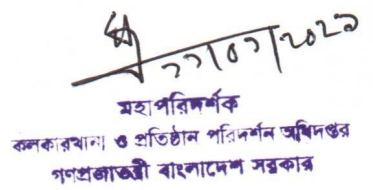 ১১/০১/২০২১
মহাপরিদর্শক
কলকারখানা ও প্রতিষ্ঠান পরিদর্শন অধিদপ্তর
গণপ্রজাতন্ত্রী বাংলাদেশ সরকার